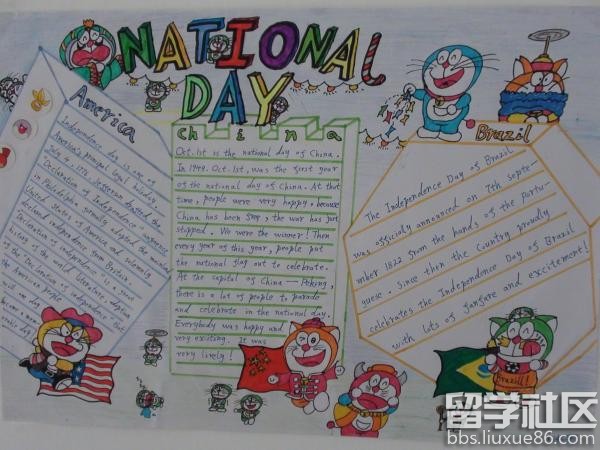 NATIONAL
DAY
America
Independence day is one of
America's principal legal holiday
July 4. 1776. Jefferson drafted the
Declaration of Independence
in Philadelphia proudly adopted the
United States of America and solemnly
declared independence from Britain
Declaration of Independence is a great
history of the world literature
of the Declaration of Independence
the American people
China
Oct. 1st is the national day of China.
In 1949. Oct. 1st, was the first year
of the national day of China. At that
time, people were very happy, because
China has been stop, the war has just
stopped. We were the winner! Then
every year of this year, people put
the national flag out to celebrate.
At the capital of China — Peking.
there is a lot of people to parade
and celebrate in the national day.
Everybody was happy and
very exciting. It was
very lively!
Brazil
The Independence Day of Brazil
was officialy announced on 7th Septe-
mber 1822 from the hands of the Portu-
guese. Since then the Country proudly
celebrates the Independence Day of Brazil
with lots of fanfare and exccitement!
Brazil!
留学社区
bbs.liuxue86.com